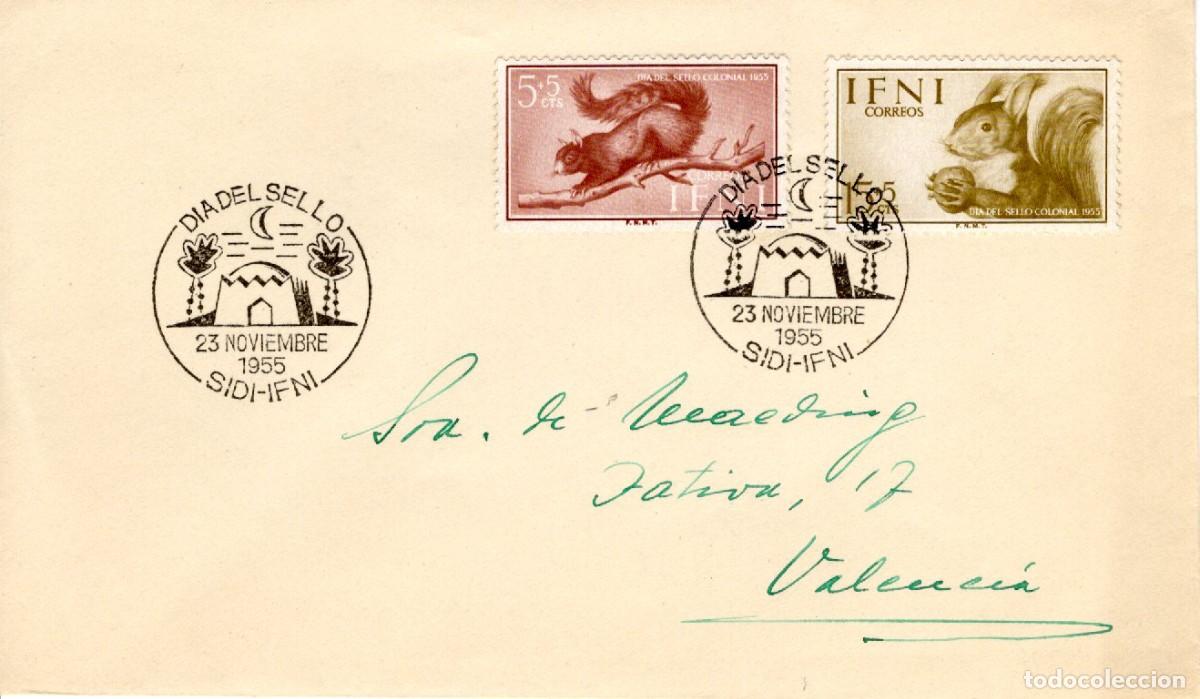 5+5
CTS
DIA DEL SELLO COLONIAL 1955
CORREOS
IFNI
F.N.M.T.
IFNI
CORREOS
CTS
DIA DEL SELLO COLONIAL 1955
F.N.M.T.
DIA DEL SELLO
23 NOVIEMBRE
1955
SIDI-IFNI
DIA DEL SELLO
23 NOVIEMBRE
1955
SIDI-IFNI
Sra. de
Jativa, 17
Valencia
todocoleccion